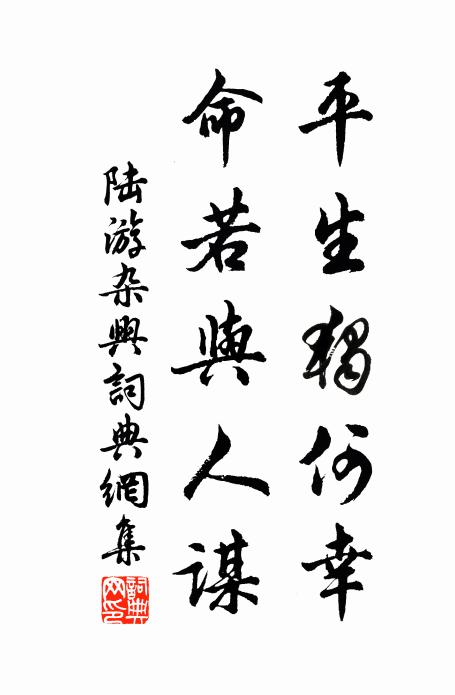 平生獨何幸
命若與人謀
陆游杂興詞典網集
詞典
网印